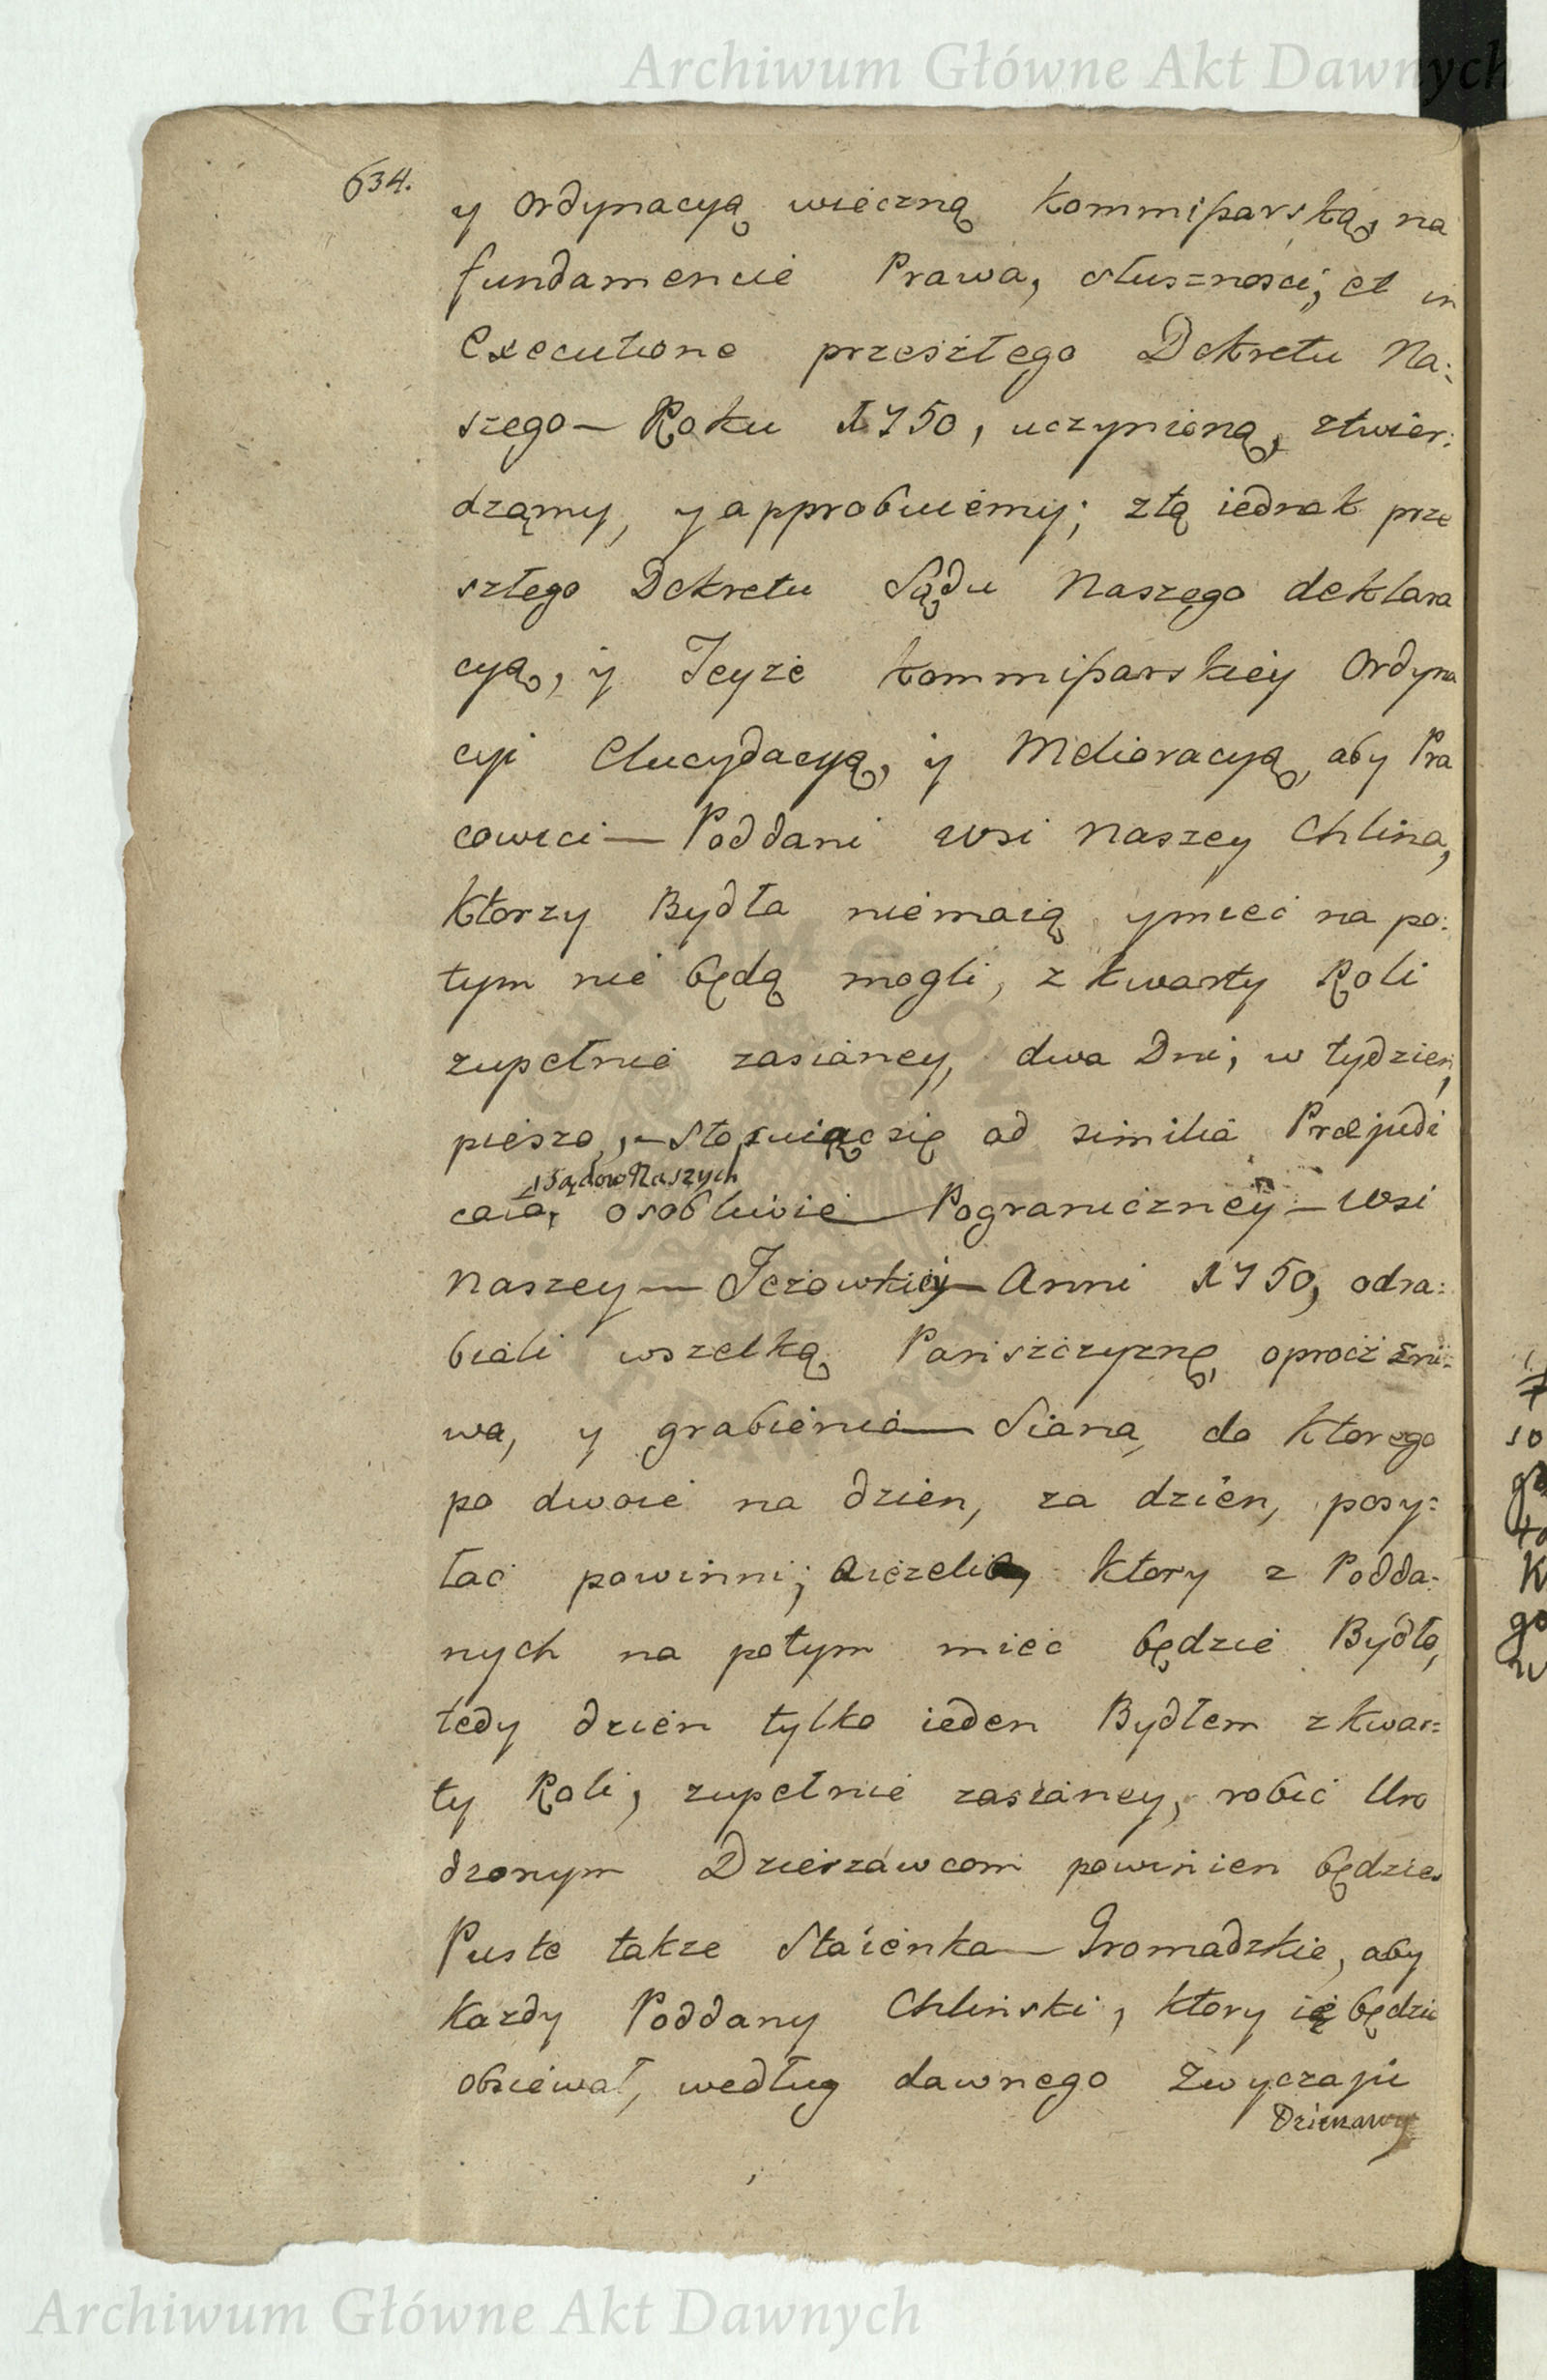 Archiwum Główne Akt Dawnych
634.
y Ordynacyą wieczną Kommißarską, na
fundamencie Prawa, słusznosci, et in
Executione przeszłego Dekretu Na:
szego — Roku 1750, uczynioną, ztwier:
dzamy, y approbuiemy; ztą iednak prze
szłego Dekretu Sądu Naszego deklara
cyą, y Teyże Kommißarskiey Ordyna
cyi Elucydacyą, y Melioracyą, aby Pra
cowici — Poddani Wsi Naszey Chlina,
Ktorzy Bydła niemaią ymieć na po:
tym nie będą mogli, z kwarty Roli
zupełnie zasianey, dwa Dni, w tydzien,
pieszo, — Stosuiąc się ad similia Præjudi
Sądow Naszych
cata, osobliwie — Pograniczney — Wsi
Naszey — Jeżowkiey — Anni 1750, odra:
biali wszelką Pańszczyznę, oprocż żni:
wa, y grabienia — Siana, do ktorego
po dwoie na dzien, za dzien, posy:
łac powinni; aieżeli ktory z Podda:
nych na potym miec będzie Bydło,
tedy dzien tylko ieden Bydłem z kwar:
ty Roli, zupełnie zasianey, robić Uro
dzonym Dzierżawcom powinien będzie
Puste takze Staienka — Gromadzkie, aby
Kazdy Poddany Chlinski, ktory ią będzie
obsiewał, według dawnego Zwyczaiu
Dzierzawy
Archiwum Główne Akt Dawnych